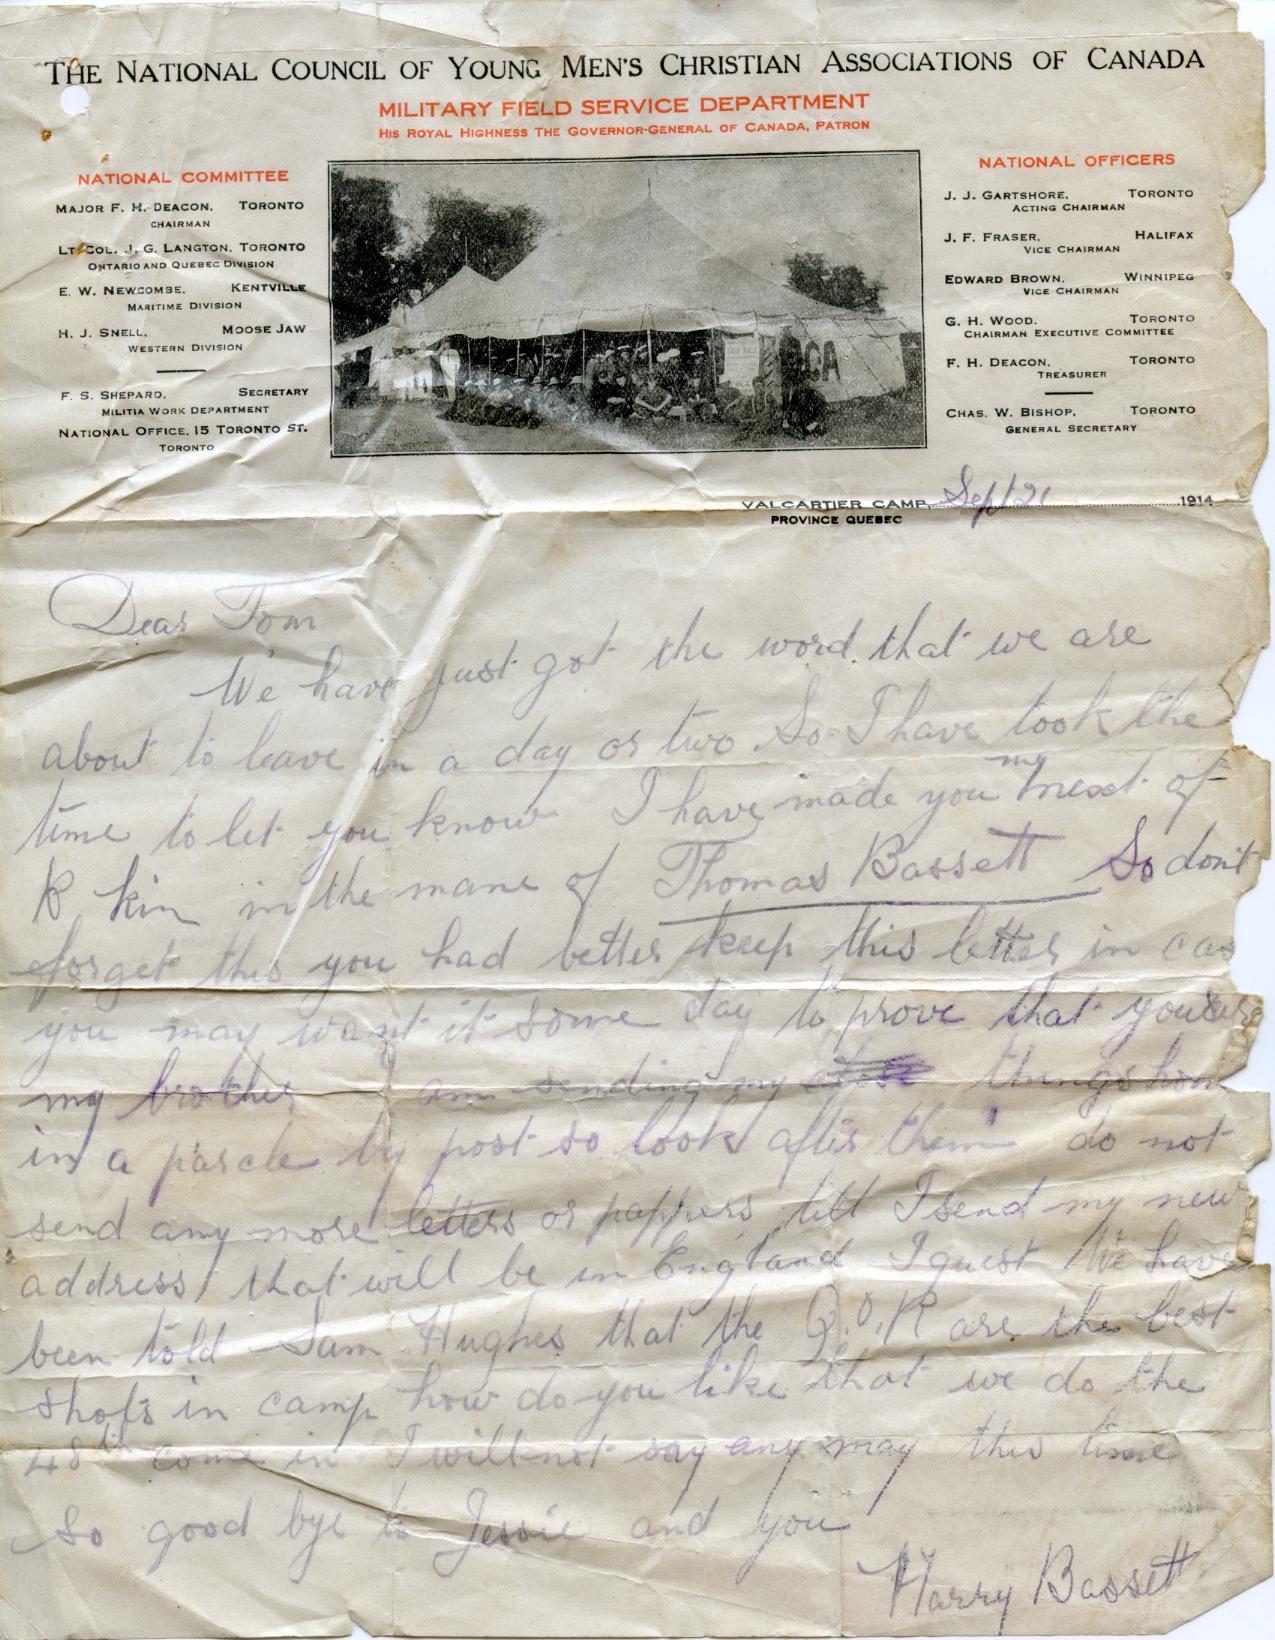 THE NATIONAL COUNCIL OF YOUNG MEN'S CHRISTIAN ASSOCIATIONS OF CANADA
MILITARY FIELD SERVICE DEPARTMENT
HIS ROYAL HIGHNESS THE GOVERNOR-GENERAL OF CANADA, PATRON
NATIONAL COMMITTEE
MAJOR F. H. DEACON, TORONTO
CHAIRMAN
LT. COL. J. G. LANGTON, TORONTO
ONTARIO AND QUEBEC DIVISION
E. W. NEWCOMBE, KENTVILLE
MARITIME DIVISION
H. J. SNELL, MOOSE JAW
WESTERN DIVISION
F. S. SHEPARD, SECRETARY
MILITIA WORK DEPARTMENT
NATIONAL OFFICE, 15 TORONTO ST.
TORONTO
CA
NATIONAL OFFICERS
J. J. GARTSHORE, TORONTO
ACTING CHAIRMAN
J. F. FRASER, HALIFAX
VICE CHAIRMAN
EDWARD BROWN, WINNIPEG
VICE CHAIRMAN
G. H. WOOD, TORONTO
CHAIRMAN EXECUTIVE COMMITTEE
F. H. DEACON, TORONTO
TREASURER
CHAS. W. BISHOP, TORONTO
GENERAL SECRETARY
VALCARTIER CAMP, Sept 21 1914
PROVINCE QUEBEC
Dear Tom
We have just got the word that we are
about to leave in a day or two. So I have took the
time to let you know I have made you my next of
K kin in the mane of Thomas Bassett So don't
forget this you had better keep this letter in cas
you may want it some day to prove that you are
my brother I am sending my things hom
in a parcle by post so look after them do not
send any more letters or pappers till I send my new
address that will be in England I guest We have
been told Sam Hughes that the Q.O.R are the best
shots in camp how do you like that we do the
48th come in I will not say any may this time
So good bye to Jessie and you
Harry Bassett